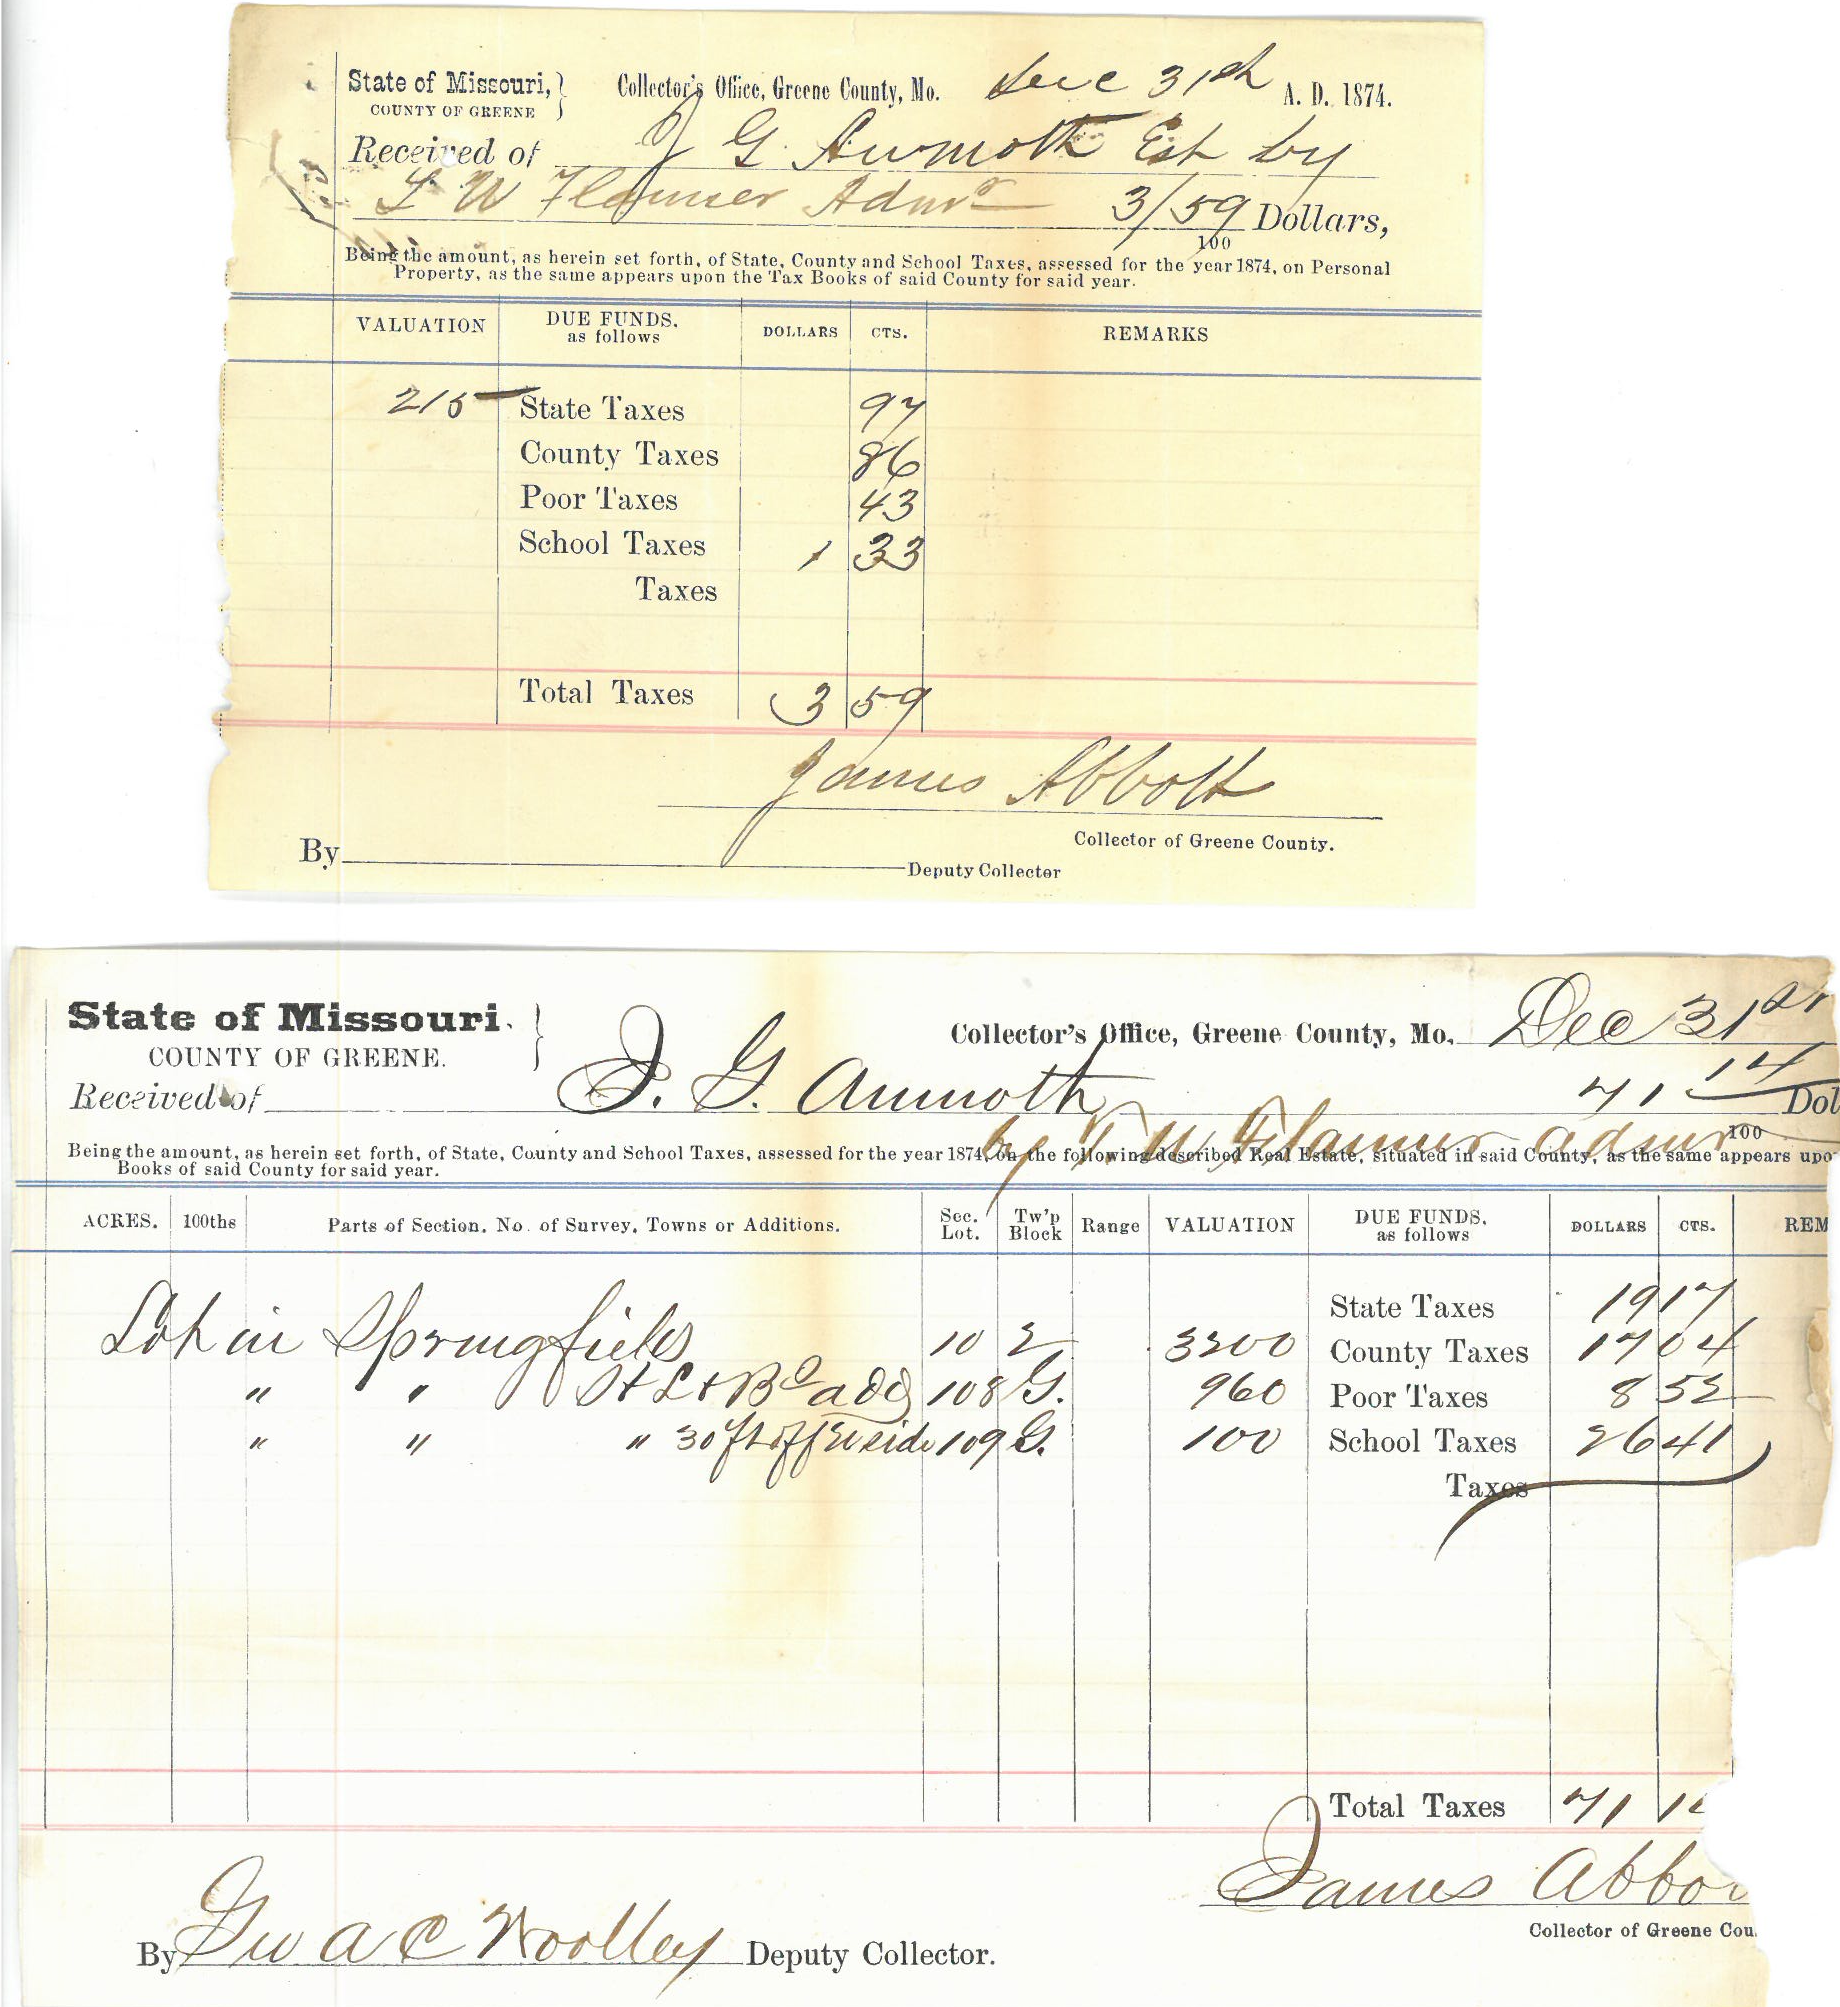 State of Missouri, } Collector's Office, Greene County, Mo. Dec 31st A. D. 1874.
COUNTY OF GREENE
Received of J G Aumoth Est by
L W Flanner Admr 3/59 Dollars,
100
Being the amount, as herein set forth, of State, County and School Taxes, assessed for the year 1874, on Personal
Property, as the same appears upon the Tax Books of said County for said year.
VALUATION DUE FUNDS. as follows DOLLARS CTS. REMARKS
215 State Taxes 97
County Taxes 86
Poor Taxes 43
School Taxes 1 33
Taxes
Total Taxes 3 59
James Abbott
Collector of Greene County.
By Deputy Collector
State of Missouri. } Collector's Office, Greene County, Mo. Dec 31st
COUNTY OF GREENE.
Received of J. G. Aumoth 71 14 Dol
by Flanner admr 100
Being the amount, as herein set forth, of State, County and School Taxes, assessed for the year 1874, on the following described Real Estate, situated in said County, as the same appears upo
Books of said County for said year.
ACRES. 100ths Parts of Section. No. of Survey, Towns or Additions. Sec. Lot. Tw'p Block Range VALUATION DUE FUNDS. as follows DOLLARS CTS. REM
State Taxes 19 17
Lot in Springfield 10 2 3200 County Taxes 17 04
" " add 108 G. 960 Poor Taxes 8 52
" " " 30 ft off side 109 G. 100 School Taxes 26 41
Taxes
Total Taxes 71 1
James Abbo
Collector of Greene Cou
By Geo A C Woolley Deputy Collector.